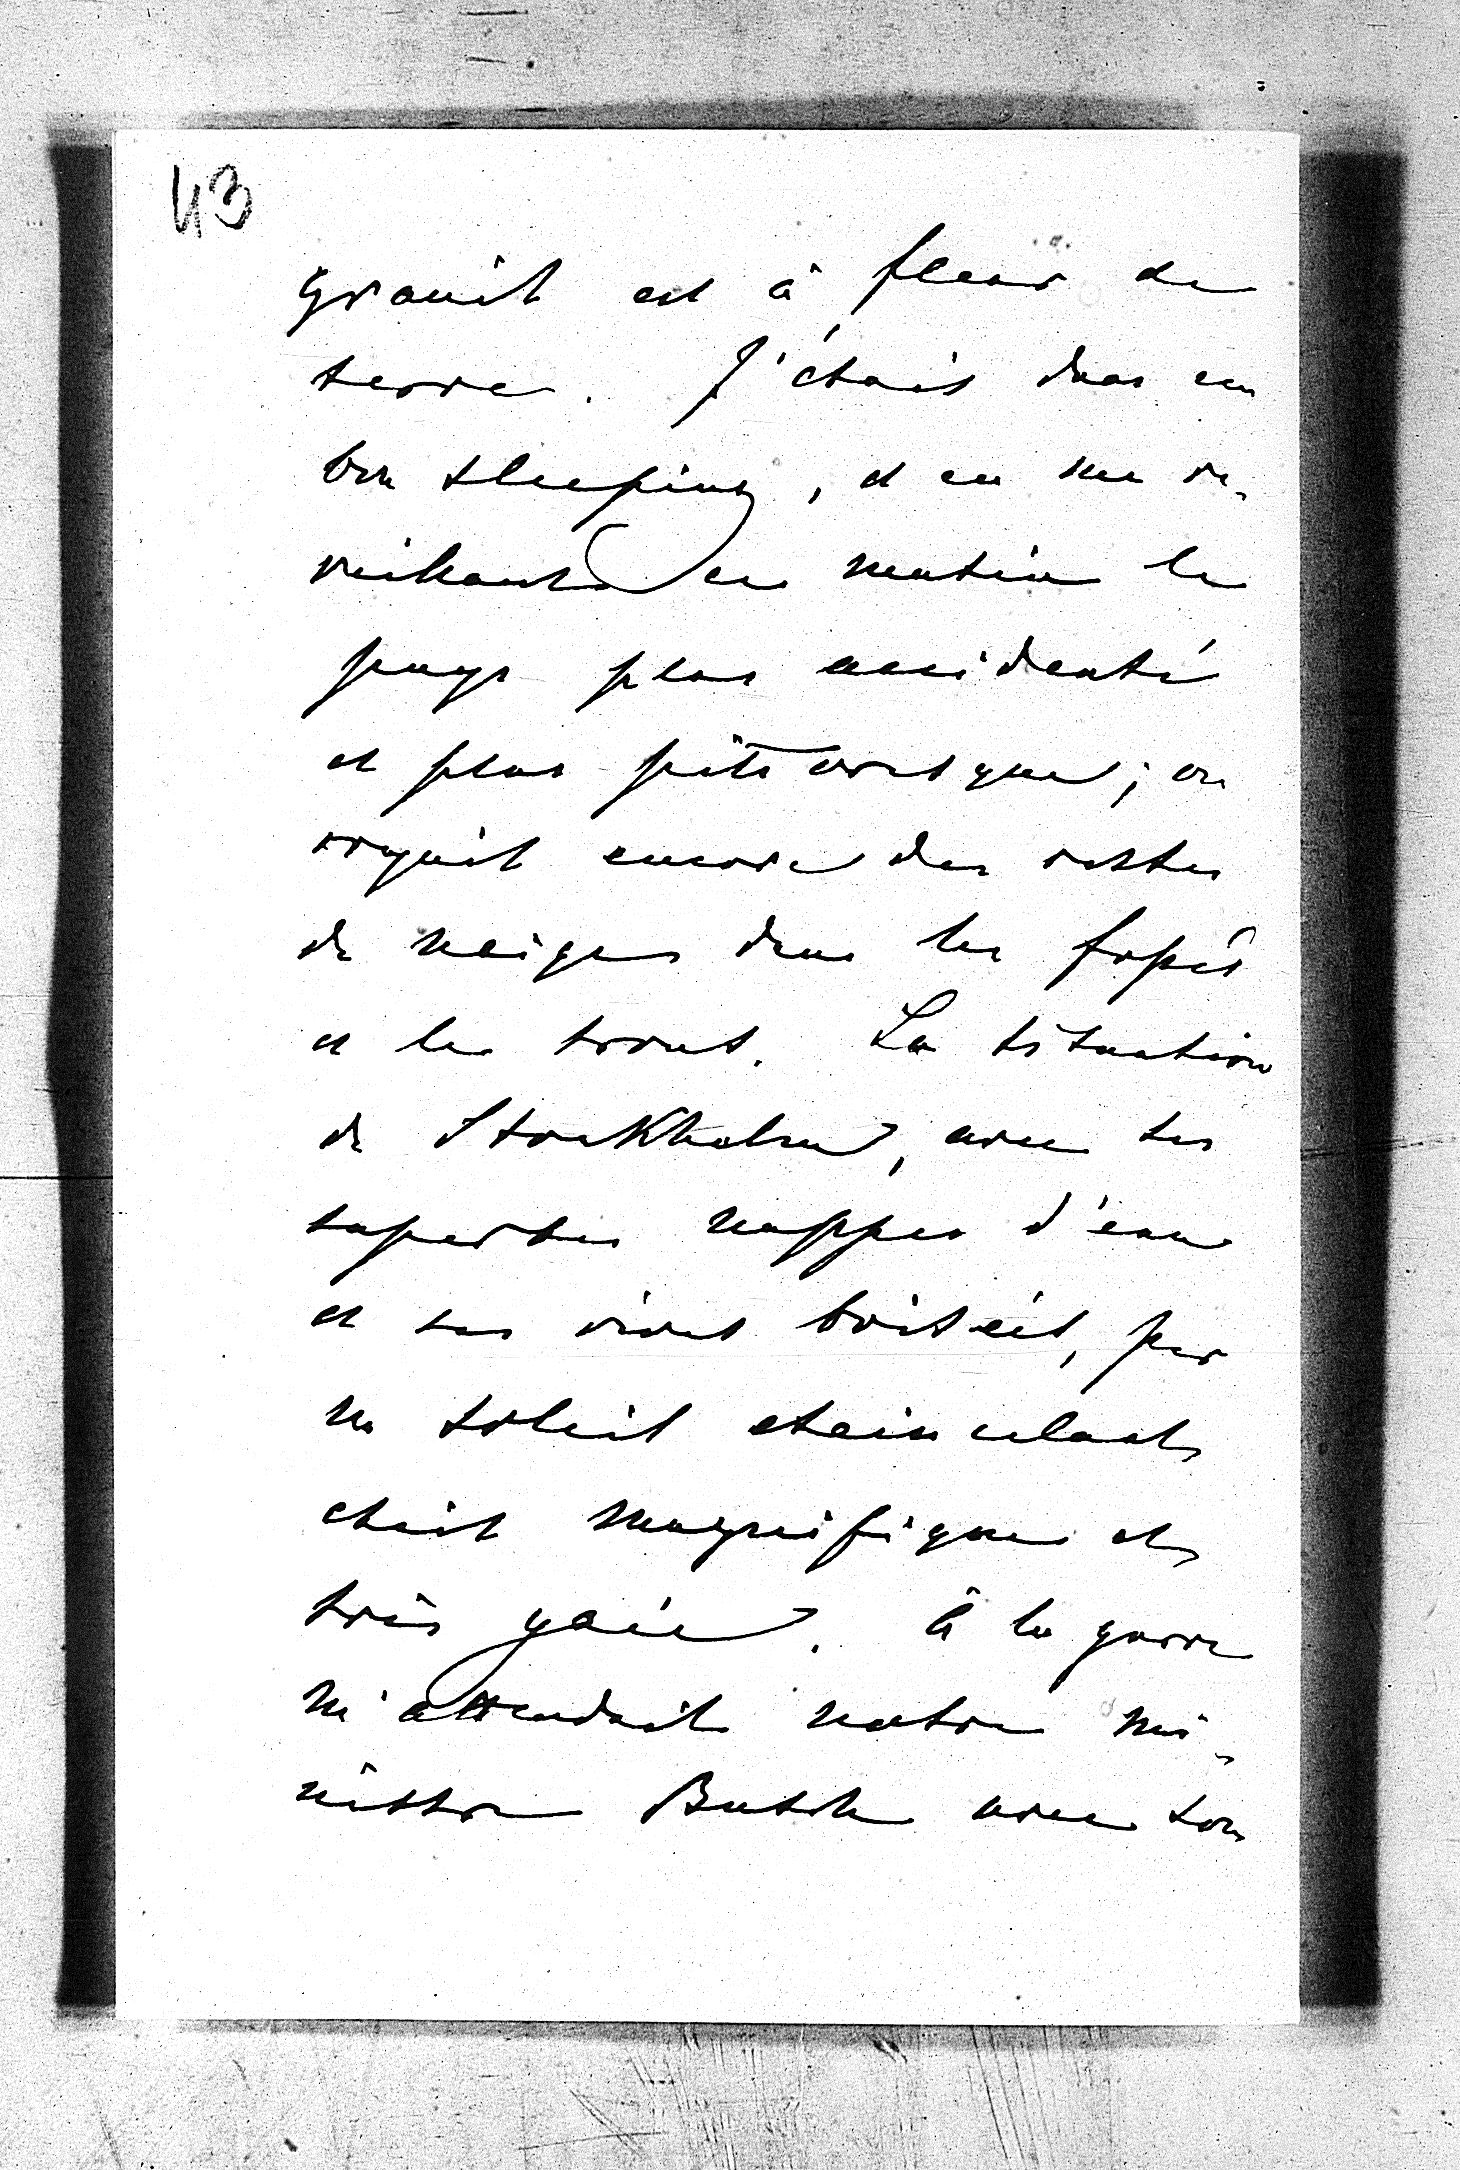 43
granit est à fleur de
terre. J'étais dans un
bon sleeping, et en me ré-
veillant ce matin le
pays plus accidenté
et plus pittoresque; on
voyait encore des restes
de neiges dans les fossés
et les trous. La situation
de Stockholm, avec ses
superbes nappes d'eau
et ses rives boisées, par
un soleil eteincelant
etait magnifique et
très gaie. à la garre
m'attendait notre mi-
nistre Butsch avec son